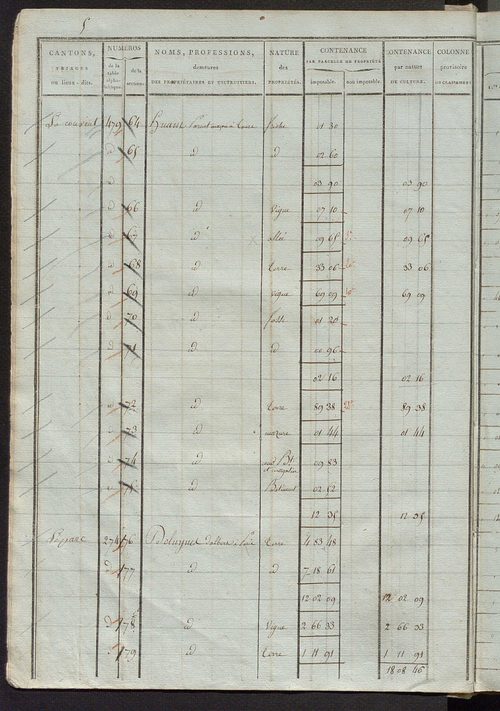 5
CANTONS, TRIAGES ou lieux-dits. | NUMÉROS de la table alphabétique. | de la section. | NOMS, PROFESSIONS, demeures DES PROPRIÉTAIRES ET USUFRUITIERS. | NATURE des PROPRIÉTÉS. | CONTENANCE PAR PARCELLE DE PROPRIÉTÉ imposable. | non imposable. | CONTENANCE par nature DE CULTURE. | COLONNE provisoire DE CLASSEMENT
479 64 01 30
d 65 id d 02 60
d 03 90 03 90
d 66 id Vigne 07 10 07 10
d 67 id allée 09 65 09 65
d 68 id terre 33 06 33 06
d 69 id vigne 69 09 69 09
d 70 id 01 20
d 71 id d 00 96
02 16 02 16
d 72 id terre 89 38 89 38
d 73 id mazure 01 44 01 44
74 id 09 83
id Batiment 02 52
12 35 12 35
274 76 terre 4 83 48
d 77 id d 7 18 61
12 02 09 12 02 09
78 id Vigne 2 66 33 2 66 33
79 id terre 1 11 91 1 11 91
18 08 46